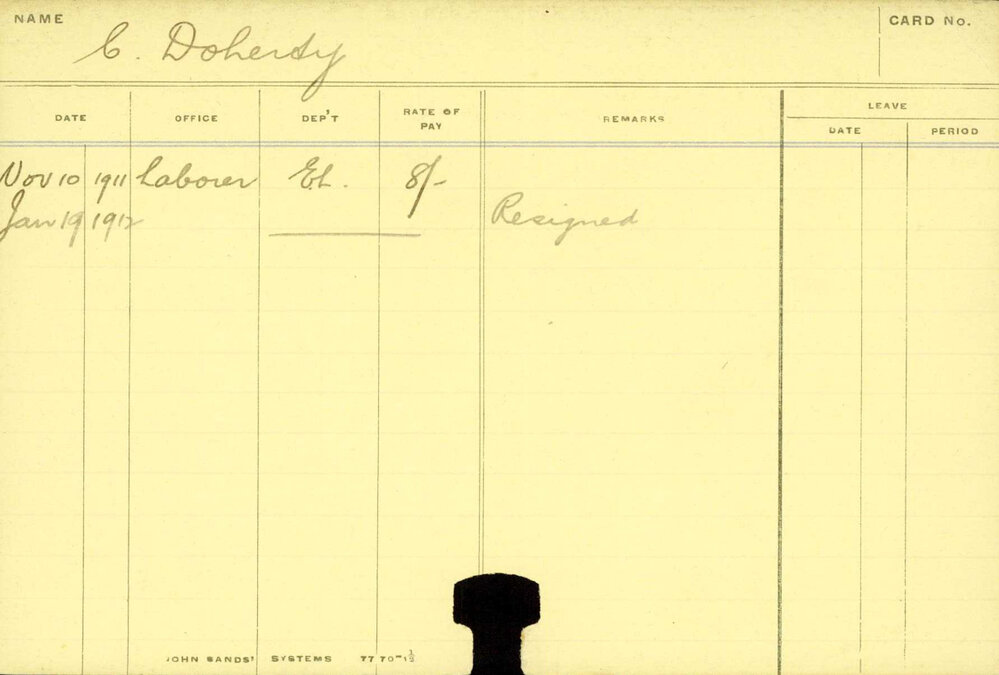 NAME
CARD No.
C. Doherty
DATE OFFICE DEP'T RATE OF PAY REMARKS LEAVE
DATE PERIOD
Nov 10 1911 Laborer EL. 8/-
Jan 19 1912 Resigned
JOHN SANDS' SYSTEMS 7770-1½